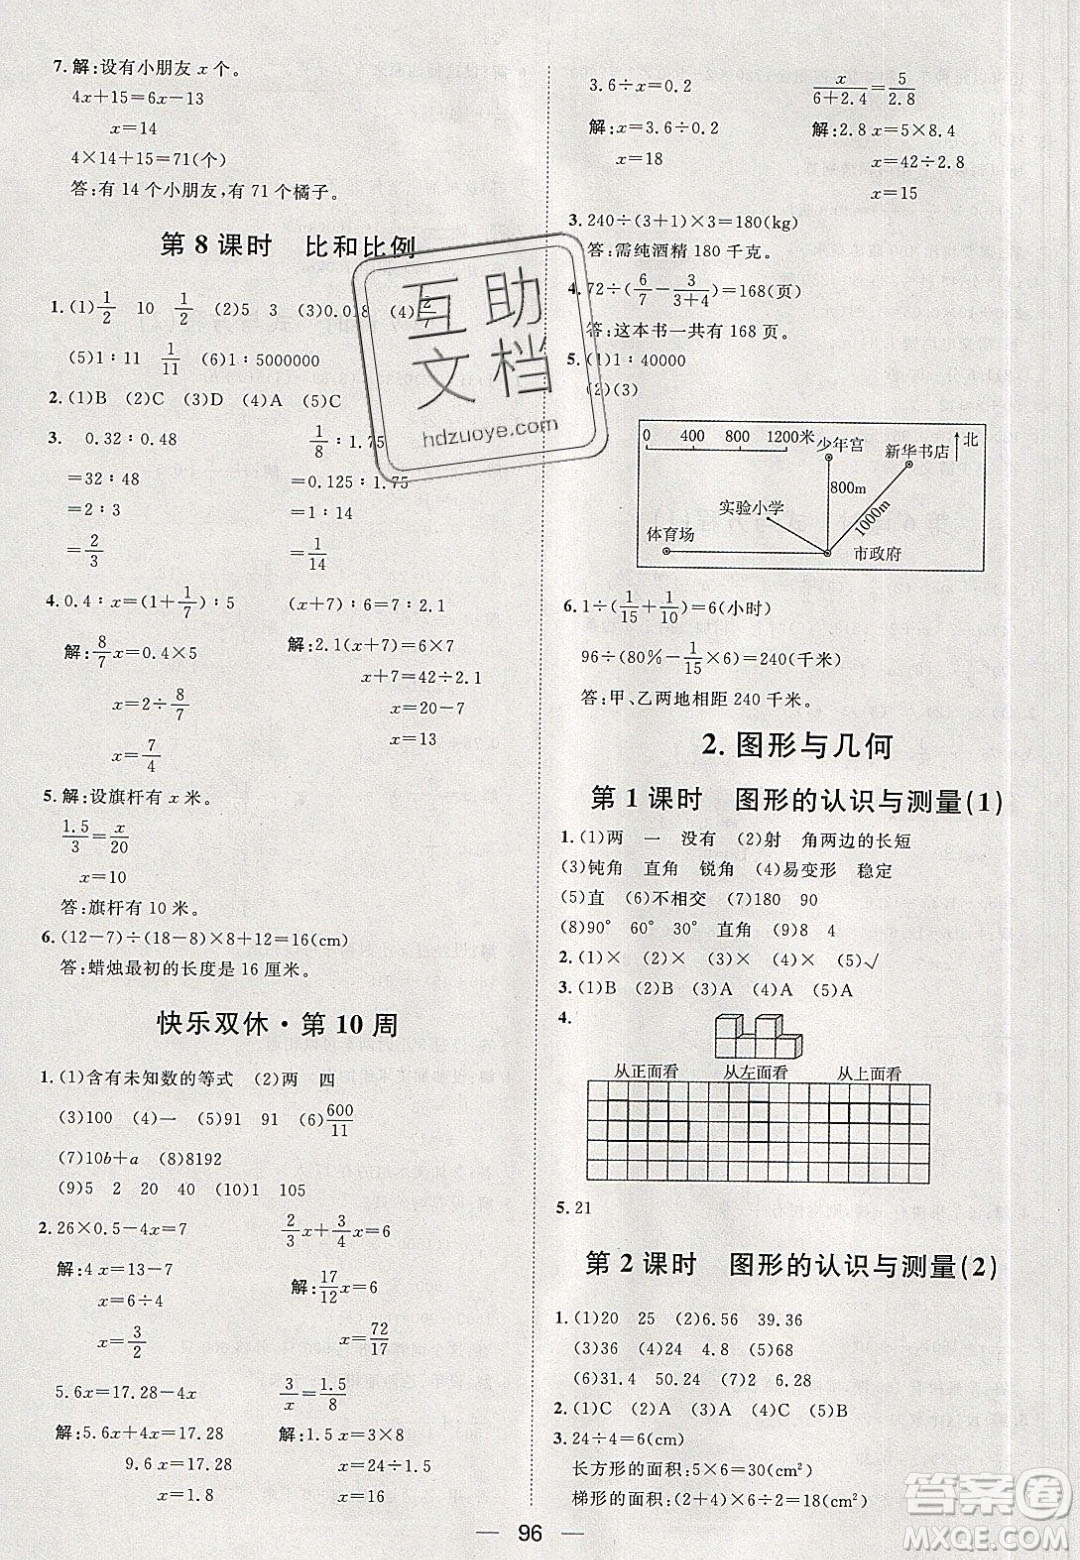 7. 解:设有小朋友 x 个。
4x+15=6x-13
x=14
4×14+15=71(个)
答:有 14 个小朋友,有 71 个橘子。
第 8 课时 比和比例
1. (1)1/2 10 1/2 (2)5 3 (3)0.018 (4)2/7
(5)1∶11 1/11 (6)1∶5000000
2. (1)B (2)C (3)D (4)A (5)C
3. 0.32∶0.48 1/8∶1.75
=32∶48 =0.125∶1.75
=2∶3 =1/14
=2/3
4. 0.4∶x=(1+1/7)∶5 (x+7)∶6=7∶2.1
解:8/7x=0.4×5 解:2.1(x+7)=6×7
x+7=42÷2.1
x=2÷8/7 x=20-7
x=7/4 x=13
5. 解:设旗杆有 x 米。
1.5/3=x/20
x=10
答:旗杆有 10 米。
6. (12-7)÷(18-8)×8+12=16(cm)
答:蜡烛最初的长度是 16 厘米。
快乐双休·第 10 周
1. (1)含有未知数的等式 (2)两 四
(3)100 (4)- (5)91 91 (6)600/11
(7)10b+a (8)8192
(9)5 2 20 40 (10)1 105
2. 26×0.5-4x=7 2/3x+3/4x=6
解:4x=13-7 解:17/12x=6
x=6÷4
x=3/2 x=72/17
5.6x=17.28-4x 3/x=1.5/8
解:5.6x+4x=17.28 解:1.5x=3×8
9.6x=17.28 x=24÷1.5
x=1.8 x=16
3.6÷x=0.2 x/(6+2.4)=5/2.8
解:x=3.6÷0.2 解:2.8x=5×8.4
x=18 x=42÷2.8
x=15
3. 240÷(3+1)×3=180(kg)
答:需纯酒精 180 千克。
4. 72÷(6/7-3/(3+4))=168(页)
答:这本书一共有 168 页。
5. (1)1∶40000
(2)(3)
0 400 800 1200米 少年宫 新华书店 北
800m
实验小学
1000m
体育场 市政府
6. 1÷(1/15+1/10)=6(小时)
96÷(80%-1/15×6)=240(千米)
答:甲、乙两地相距 240 千米。
2. 图形与几何
第 1 课时 图形的认识与测量(1)
1. (1)两 一 没有 (2)射 角两边的长短
(3)钝角 直角 锐角 (4)易变形 稳定
(5)直 (6)不相交 (7)180 90
(8)90° 60° 30° 直角 (9)8 4
2. (1)× (2)× (3)× (4)× (5)√
3. (1)B (2)B (3)A (4)C (5)A
4.
从正面看 从左面看 从上面看
5. 21
第 2 课时 图形的认识与测量(2)
1. (1)20 25 (2)6.56 39.36
(3)36 (4)24 4.8 (5)68
(6)31.4 50.24 (7)2 6.28
2. (1)C (2)A (3)A (4)B (5)A
3. 24÷4=6(cm)
长方形的面积:5×6=30(cm²)
梯形的面积:(2+4)×6÷2=18(cm²)
96
互助
文档
hdzuoye.com
答案圈
MXQE.COM